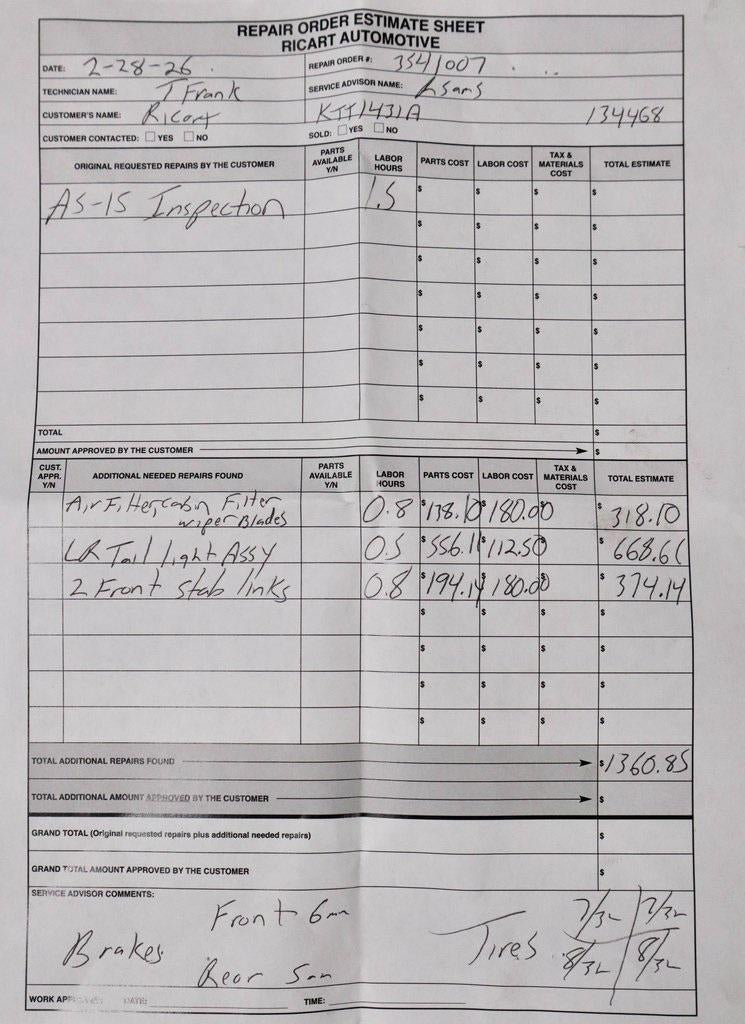 REPAIR ORDER ESTIMATE SHEET
RICART AUTOMOTIVE
DATE: 2-28-26
REPAIR ORDER #: 3541007
TECHNICIAN NAME: T Frank
SERVICE ADVISOR NAME: Lsams
CUSTOMER'S NAME: Ricart
KTT1431A 134468
CUSTOMER CONTACTED: YES NO
SOLD: YES NO
ORIGINAL REQUESTED REPAIRS BY THE CUSTOMER PARTS AVAILABLE Y/N LABOR HOURS PARTS COST LABOR COST TAX & MATERIALS COST TOTAL ESTIMATE
AS-IS Inspection 1.5 $ $ $ $
$ $ $ $
$ $ $ $
$ $ $ $
$ $ $ $
$ $ $ $
$ $ $ $
TOTAL $
AMOUNT APPROVED BY THE CUSTOMER $
CUST. APPR. Y/N ADDITIONAL NEEDED REPAIRS FOUND PARTS AVAILABLE Y/N LABOR HOURS PARTS COST LABOR COST TAX & MATERIALS COST TOTAL ESTIMATE
Air Filter, cabin Filter
wiper Blades 0.8 $138.10 $180.00 $ $318.10
LR Tail light Assy 0.5 $556.11 $112.50 $ $668.61
2 Front stab links 0.8 $194.14 $180.00 $ $374.14
$ $ $ $
$ $ $ $
$ $ $ $
$ $ $ $
TOTAL ADDITIONAL REPAIRS FOUND $1360.85
TOTAL ADDITIONAL AMOUNT APPROVED BY THE CUSTOMER $
GRAND TOTAL (Original requested repairs plus additional needed repairs) $
GRAND TOTAL AMOUNT APPROVED BY THE CUSTOMER $
SERVICE ADVISOR COMMENTS:
Front 6mm
Brakes
Rear 5mm
Tires
7/32 7/32
8/32 8/32
WORK APP DATE: TIME: